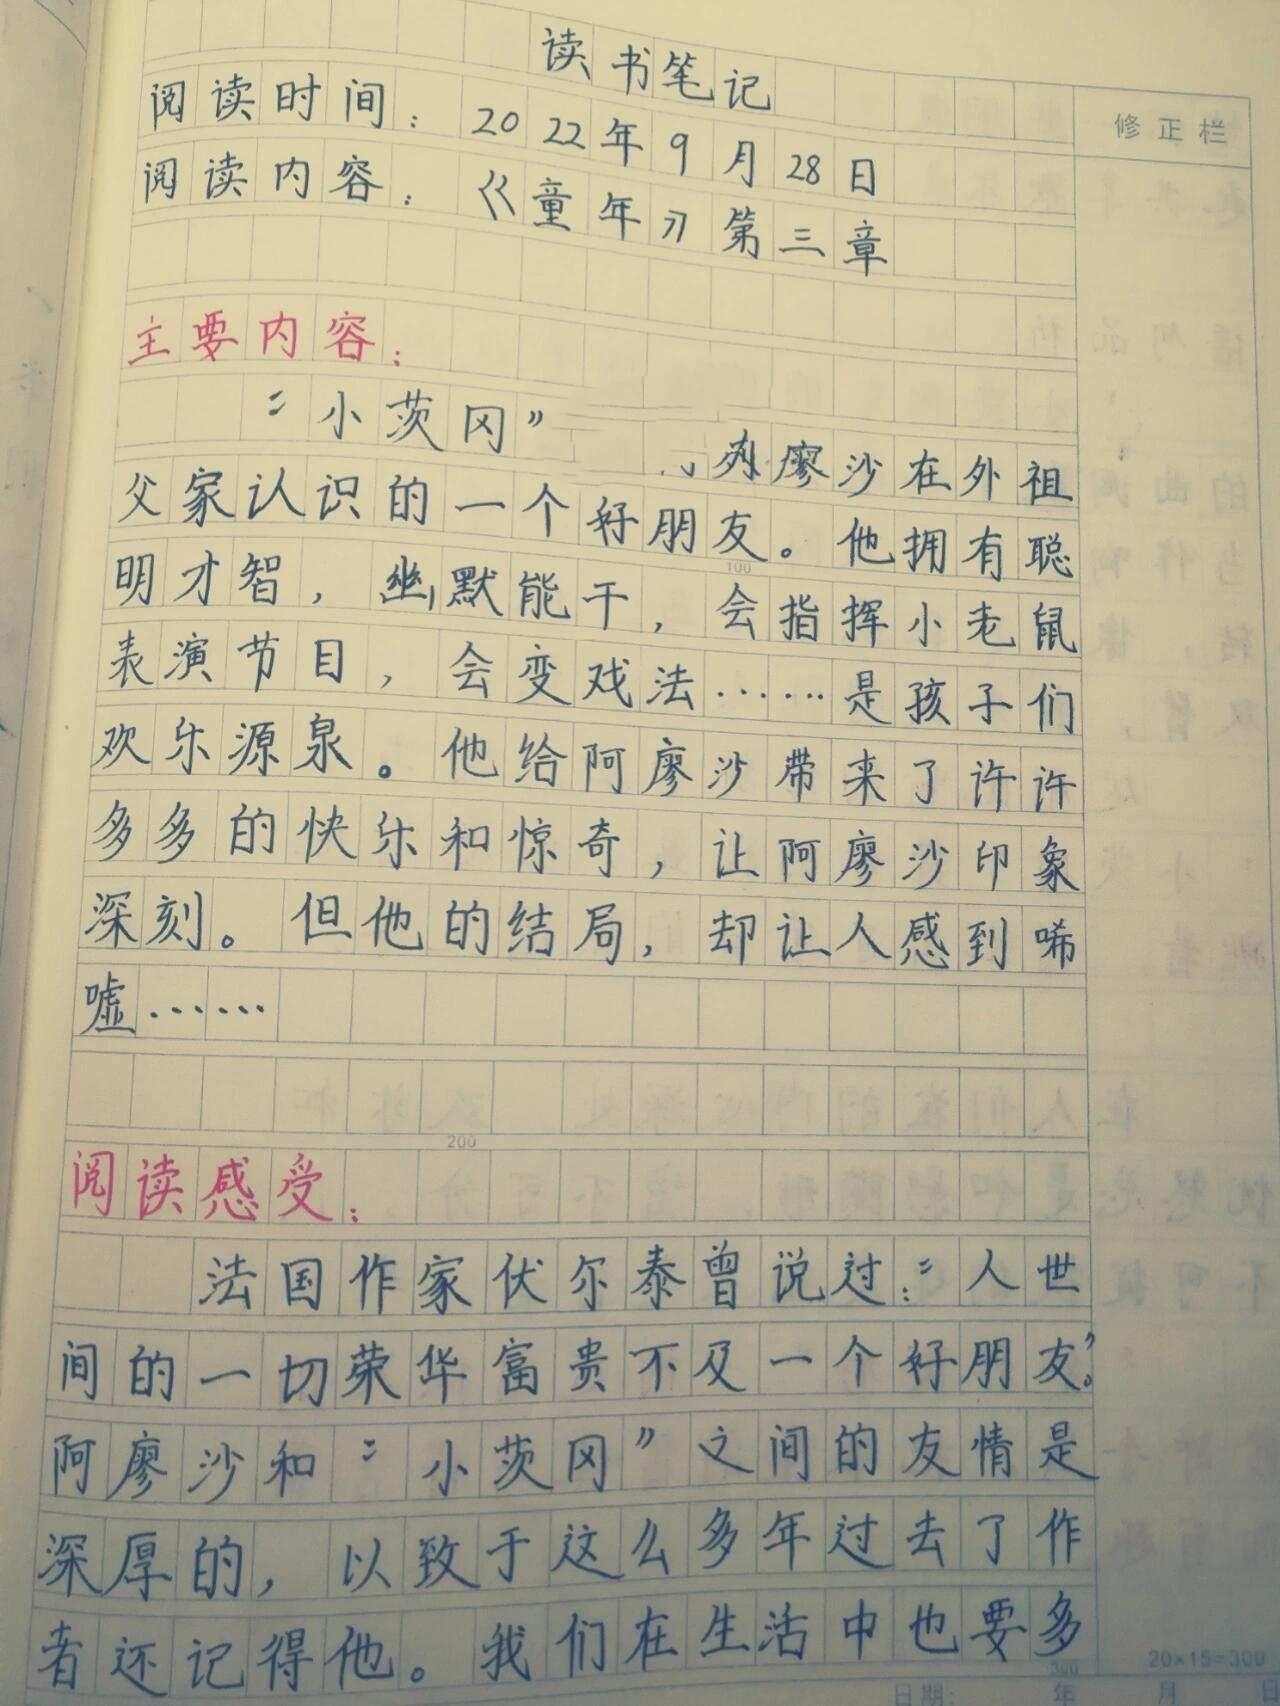 读书笔记
修正栏
阅读时间：2022年9月28日
阅读内容：《童年》第三章
主要内容：
“小茨冈” 廖沙在外祖
父家认识的一个好朋友。他拥有聪
100
明才智，幽默能干，会指挥小老鼠
表演节目，会变戏法……是孩子们
欢乐源泉。他给阿廖沙带来了许许
多多的快乐和惊奇，让阿廖沙印象
深刻。但他的结局，却让人感到唏
嘘……
200
阅读感受：
法国作家伏尔泰曾说过：“人世
间的一切荣华富贵不及一个好朋友”。
阿廖沙和“小茨冈”之间的友情是
深厚的，以致于这么多年过去了作
者还记得他。我们在生活中也要多
300
20×15=300
日期： 年 月 日